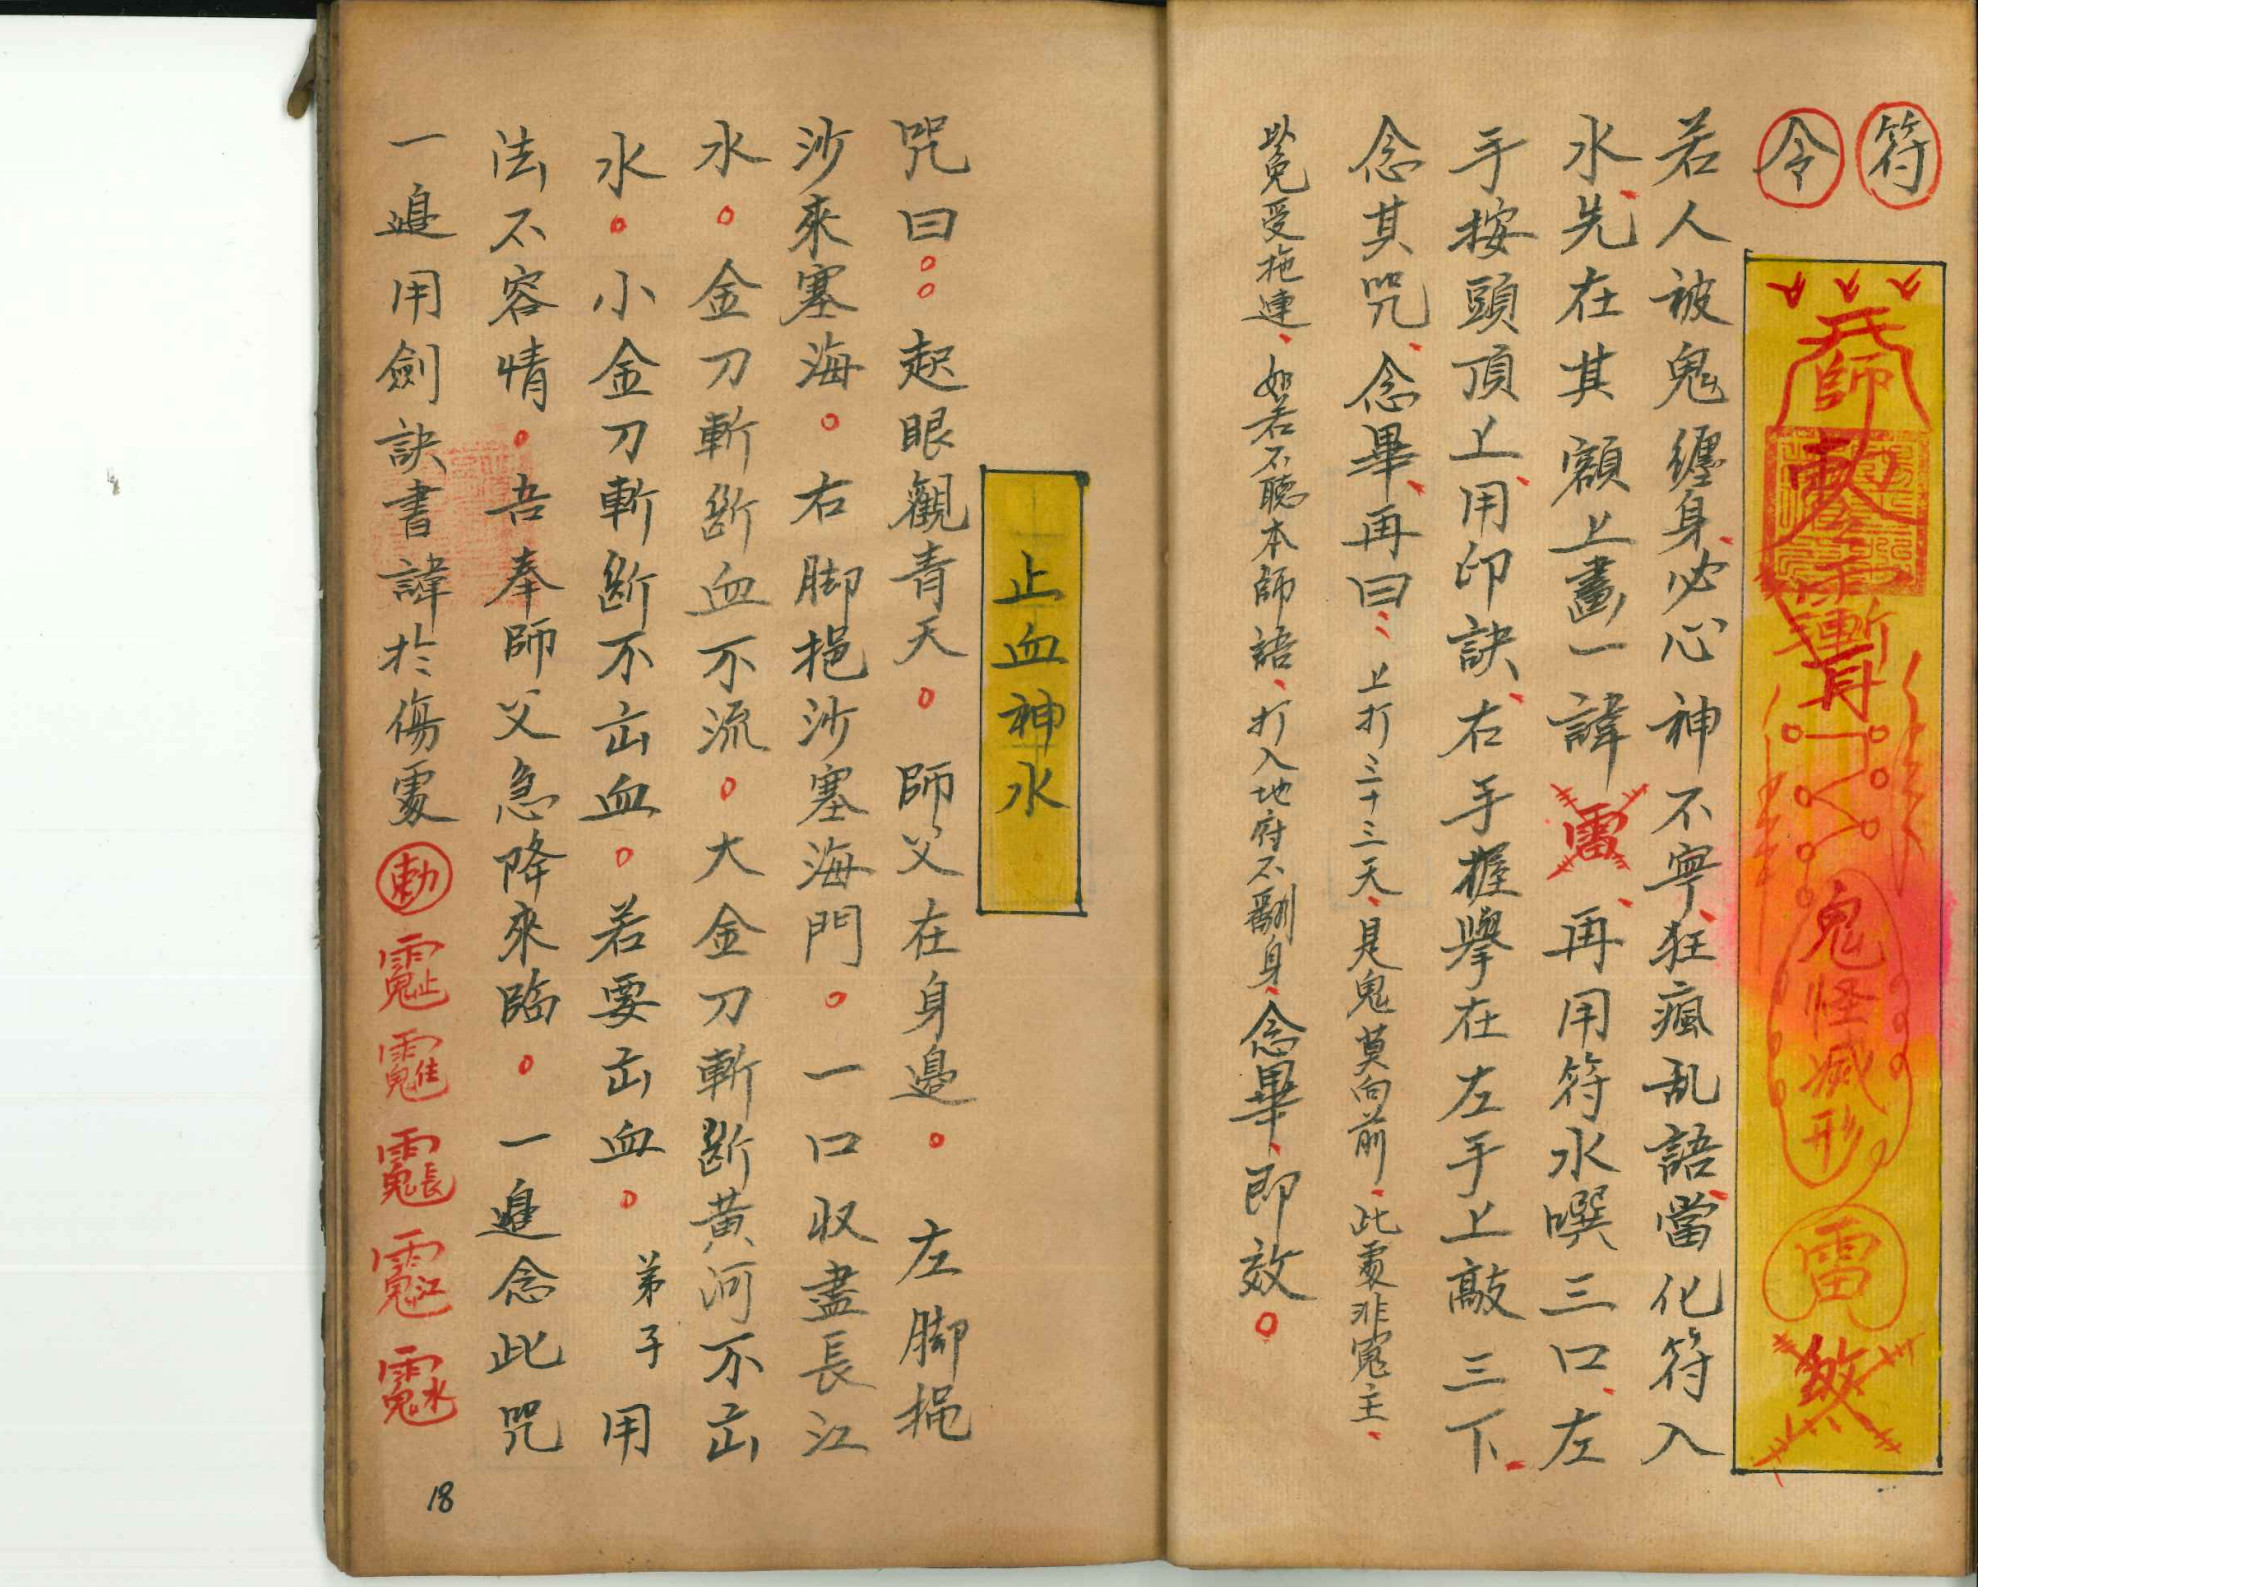 符
令
師
鬼怪滅形
雷
煞
若人被鬼纏身、必心神不寧、狂瘋乱語、當化符入
水、先在其額上畫一諱雷、再用符水噀三口、左
手按頭頂上、用印訣、右手握舉在左手上敲三下、
念其咒、念畢、再曰：上打三十三天、是鬼莫向前、此處非寃主、
以免受拖連、如若不聽本師語、打入地府不翻身、念畢、即效。
止血神水
咒曰：起眼觀青天。師父在身邊。左脚挹
沙來塞海。右脚挹沙塞海門。一口収盡長江
水。金刀斬斷血不流。大金刀斬斷黃河不出
水。小金刀斬斷不出血。若要出血。弟子用
法不容情。吾奉師父急降來臨。一邉念此咒
一邉用劍訣書諱於傷處 勅
18